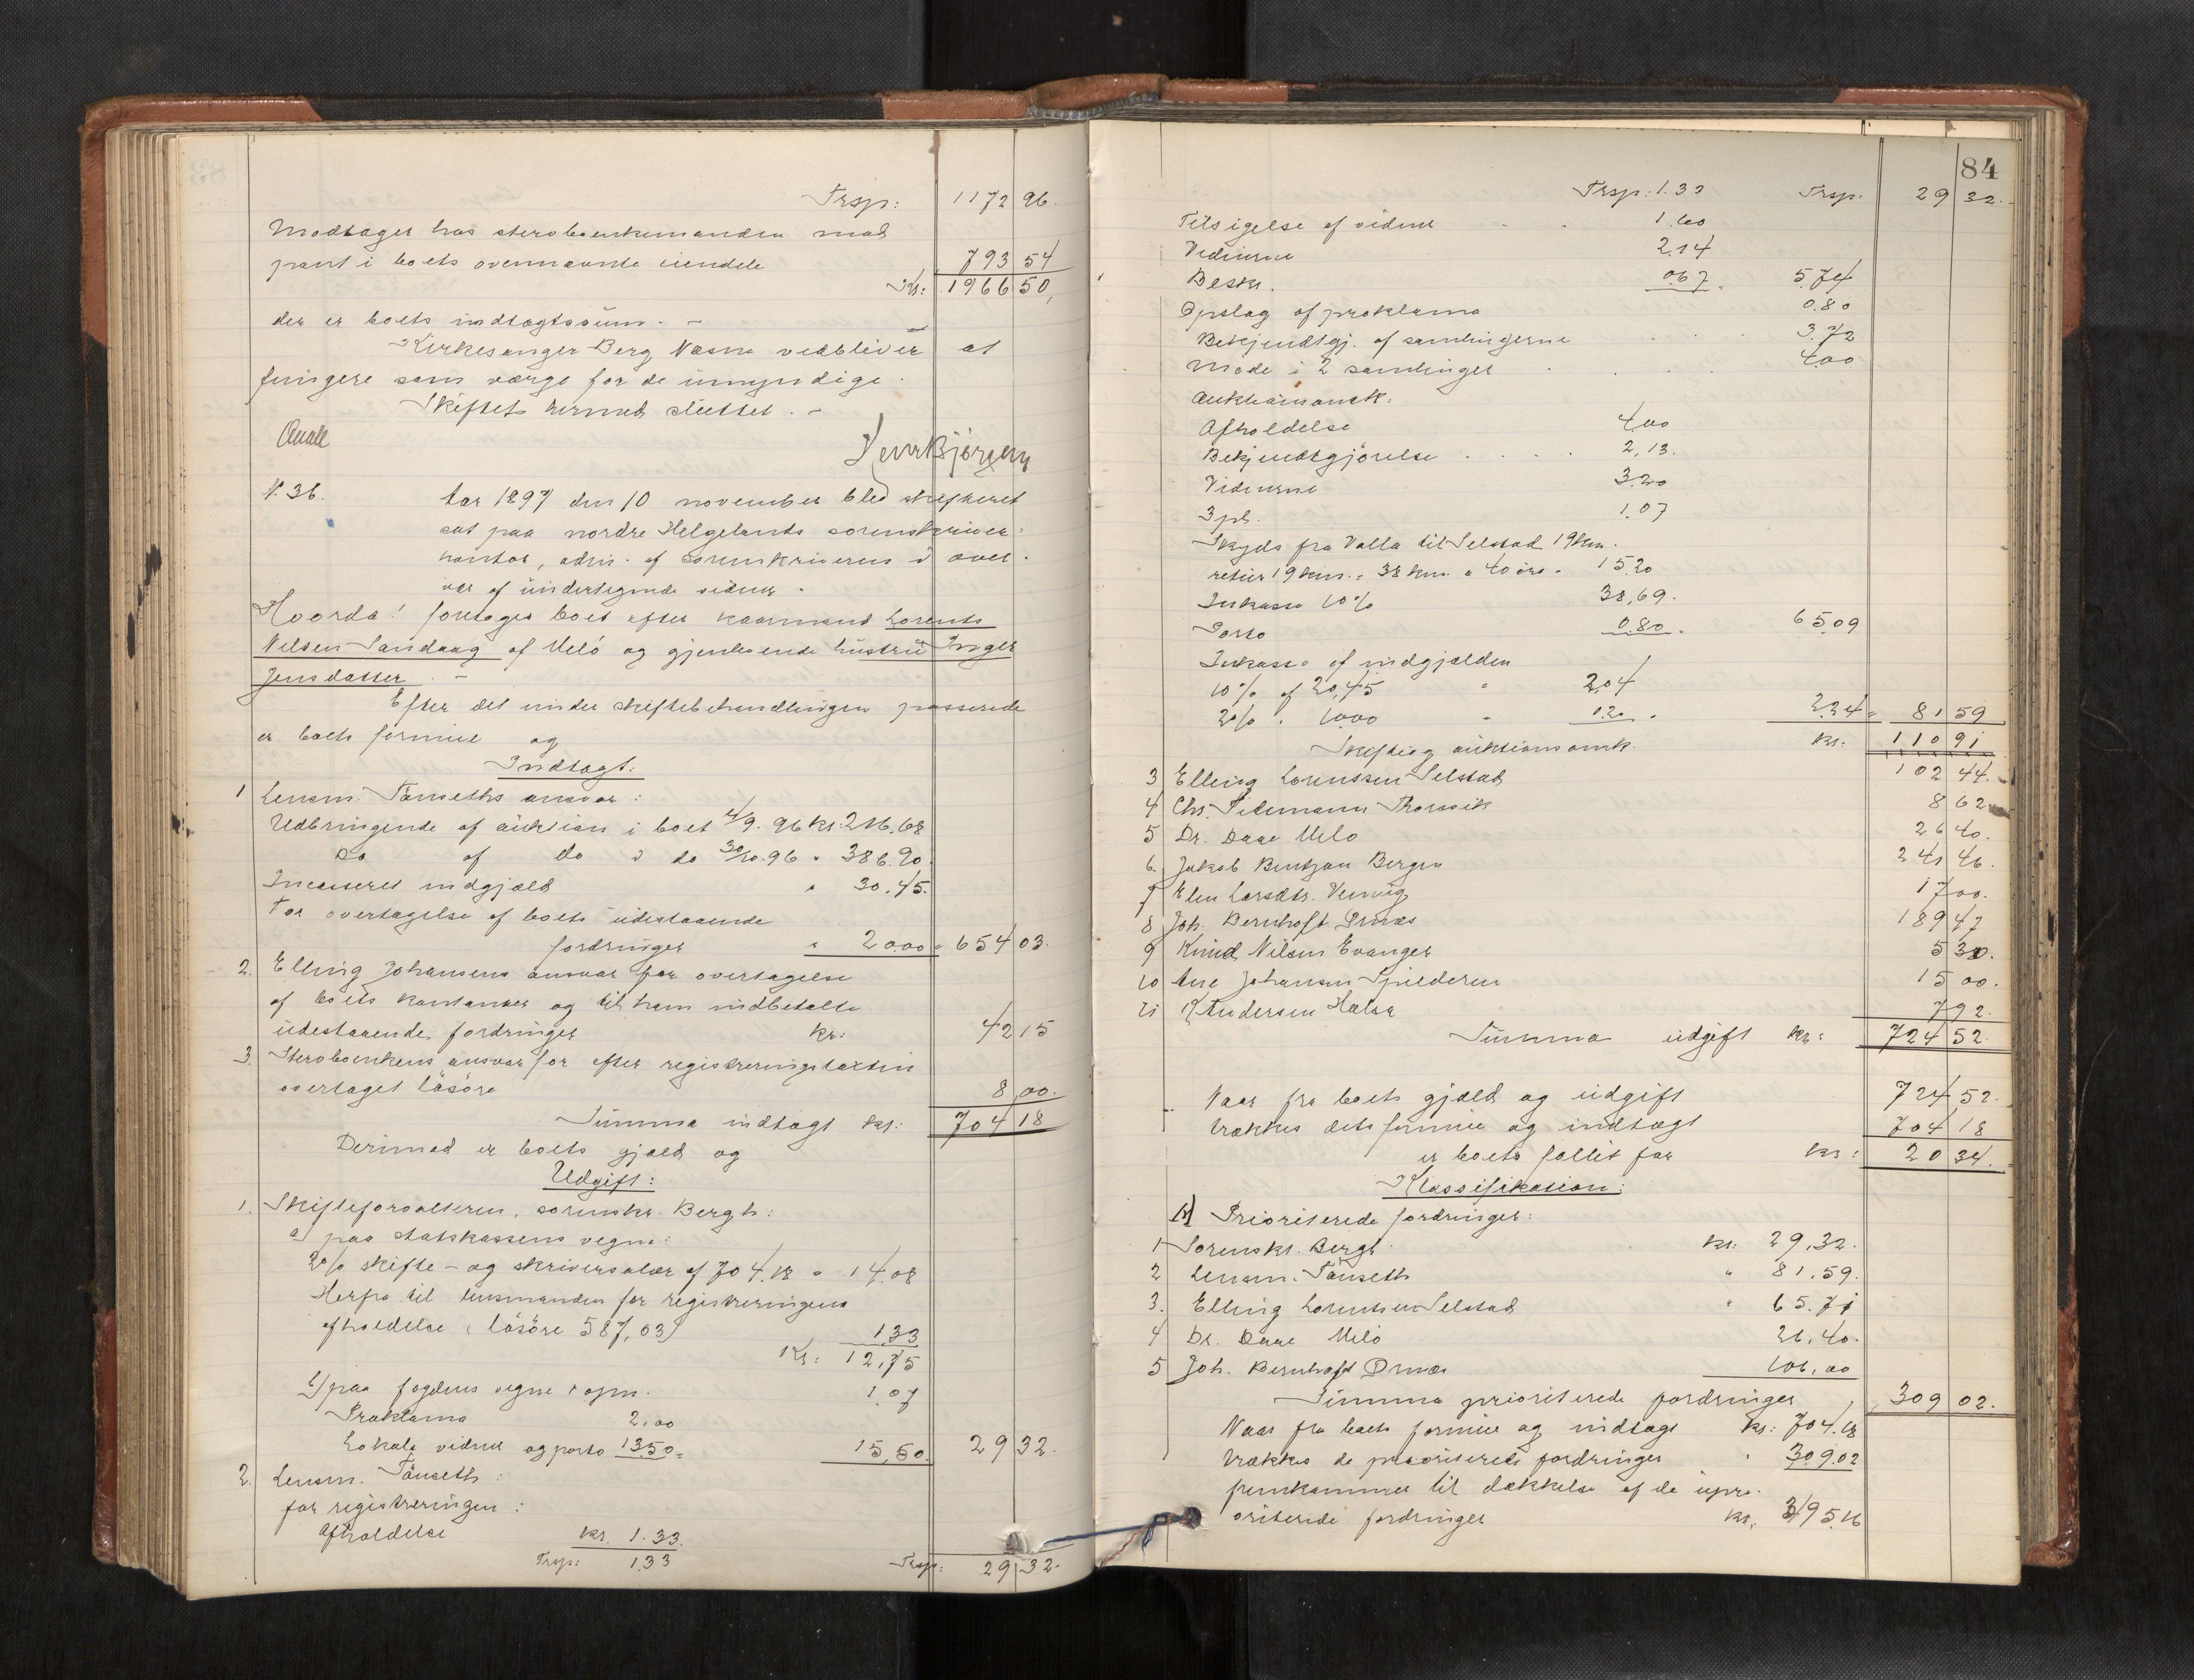 Trsp: 1172 96.
Modtager hos sterboenkemanden mod
pant i boets ovennævnte eiendele 793 54
Kr: 1966 50,
der er boets indtægtssum. –
Kirkesanger Berg Næsne vedbliver at
fungere som værge for de umyndige.
Skiftet hermed sluttet. –
N. 36. Aar 1897 den 10 november blev skifteret
sat paa nordre Helgelands sorenskriver:
kontor, adm. af sorenskriveren i over:
vær af undertegnede vidner.
Hvorda! foretoges boet efter kaarmand Lorents
Nilsen Sandaag af Melö og gjenlevende hustru Inger
Jensdatter. –
Efter det under skiftebehandlingen passerede
er boets formue og
Indtægt:
1 Lensm. Tönseths ansvar:
Udbringende af auktion i boet 4/9. 96 kr: 216.68
Do af do i do 30/10.96 " 386.90
Incasseret indgjæld " 30.45.
For overtagelse af boets udestaaende
fordringer " 20.00 = 654 03.
2. Elling Johansens ansvar for overtagelse
af boets kontanter og til ham indbetalte
udestaaende fordringer kr: 42 15
3. Sterboenkens ansvar for efter registreringstaxten
overtaget lösöre 8 00.
Summa indtægt kr: 704 18
Derimod er boets gjæld og
Udgift:
1. Skifteforvalteren, sorenskr. Bergh:
a) paa statskassens vegne:
2% skifte – og skriversalær af 704.18 = 14.08
Herfra til lensmanden for registreringens
afholdelse (lösöre 587,03) 1.33
Kr: 12,75
b) paa fogdens vegne 1 opn. 1.07
Proklama 2.00
Lokale vidner og porto 13.50 = 15,50 29 32.
2. Lensm. Tönseth:
for registreringen:
Afholdelse kr. 1.33.
Trsp: 1.33 Trsp: 29 32.
84
Trsp: 1.33 Trsp. 29 32.
Tilsigelse af vidner 1.60
Vidnerne 2.14
Beskr. 0.67. 5.74
Opslag af proklama 0.80
Bekjendtgj. af samlingerne 3.72
Möde i 2 samlinger 4.00
Auktionsomk:
Afholdelse 4.00
Bekjendtgjörelse 2,13.
Vidnerne 3.20
3 pl. 1.07
Skyds fra Valla til Selstad 19 km.
retur 19 km. = 38 km. à 40 öre = 15.20
Inkasso 10% 38,69.
Porto 0.80. 65.09
Inkasso af indgjælden
10% af 20,45 " 2.04
2% " 10.00 " 0.20 = 2.24 = 81 59
Skifte og auktionsomk. kr: 110 91
3 Elling Lorentsen Selstad 102 44.
4 Chr. Tidemann Thorsvik 8 62
5 Dr. Daae Melö 26 40.
6. Jakob Bentzon Bergen 241 46.
7 Elen Larsdtr. Venvig 17 00.
8 Joh. Bernhoft Ørnæs 189 47
9 Knud Nilsen Evanger 5 30.
10 Ane Johansen Spilderen 15 00.
11 P. Andersen Halsa 7 92.
Summa udgift kr: 724 52.
Naar fra boets gjæld og udgift 724 52.
trækkes dets formue og indtægt 704 18
er boets fallit for kr: 20 34.
Klassifikation:
A) Prioriterede fordringer:
1 Sorenskr. Bergh kr: 29,32.
2 Lensm. Tönseth " 81,59.
3. Elling Lorentsen Selstad " 65.71
4 Dr. Daae Melö 26,40.
5 Joh. Bernhoft Ørnæs 106,00
Summa prioriterede fordringer, 309 02.
Naar fra boets formue og indtægt kr: 704.18
trækkes de prioriterede fordringer " 309.02
fremkommer til dækkelse af de upri-
oriterede fordringer kr. 395.16